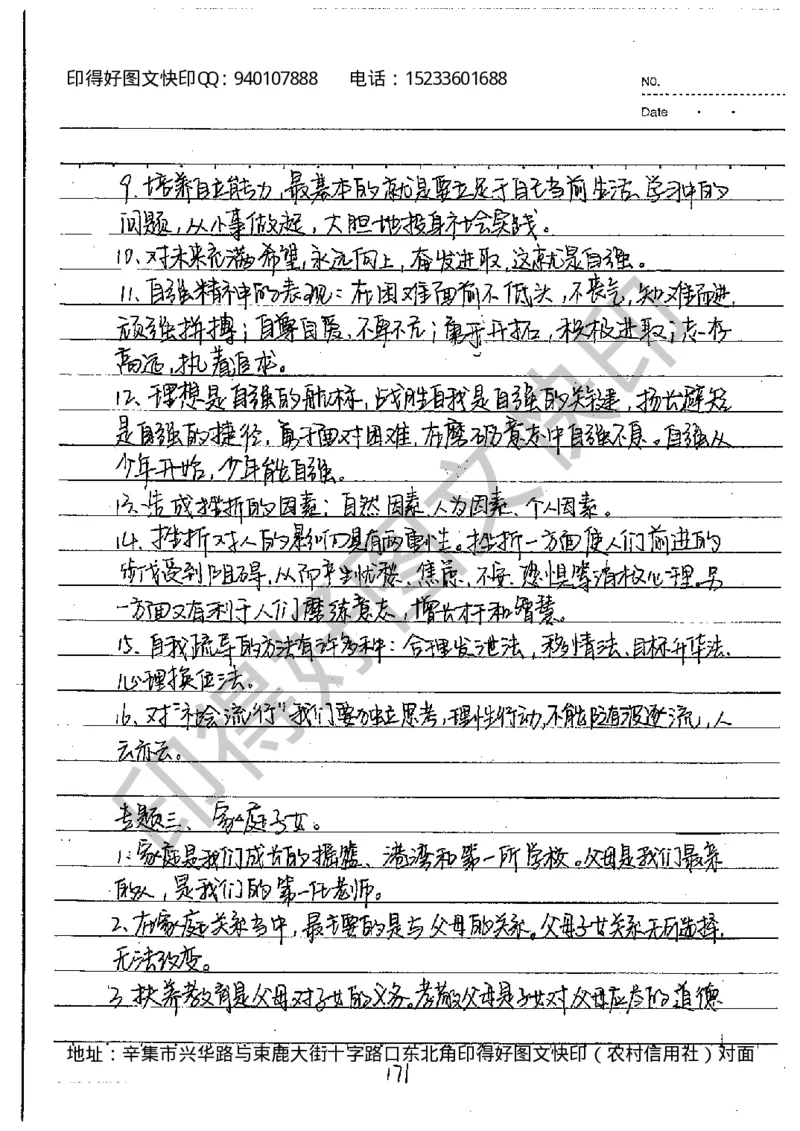 印得好图文快印QQ：940107888 电话：15233601688
NO.
Date
9、培养自立能力，最基本的就是要立足于自己当前生活、学习中的
问题，从小事做起，大胆地投身社会实践。
10、对未来充满希望，永远向上，奋发进取，这就是自强。
11、自强精神的表现：在困难面前不低头，不丧气，知难而进，
顽强拼搏；自尊自爱、不卑不亢；勇于开拓，积极进取；志存
高远，执着追求。
12、理想是自强的航标，战胜自我是自强的关键，扬长避短
是自强的捷径，勇于面对困难，在磨砺意志中自强不息。自强从
少年开始，少年能自强。
13、造成挫折的因素：自然因素、人为因素、个人因素。
14、挫折对人的影响具有两重性。挫折一方面使人们前进的
步伐受到阻碍，从而产生忧愁、焦虑、不安、恐惧等消极心理。另
一方面又有利于人们磨练意志，增长才干和智慧。
15、自我疏导的方法有许多种：合理发泄法，移情法、目标升华法、
心理换位法。
16、对“社会流行”我们要独立思考，理性行动，不能随波逐流，人
云亦云。
专题三、家庭子女。
1、家庭是我们成长的摇篮、港湾和第一所学校。父母是我们最亲
的人，是我们的第一任老师。
2、在家庭关系当中，最主要的是与父母的关系。父母子女关系无所选择，
无法改变。
3、扶养教育是父母对子女的义务。孝敬父母是子女对父母应尽的道德
地址：辛集市兴华路与束鹿大街十字路口东北角印得好图文快印（农村信用社）对面
171
印得好图文快印